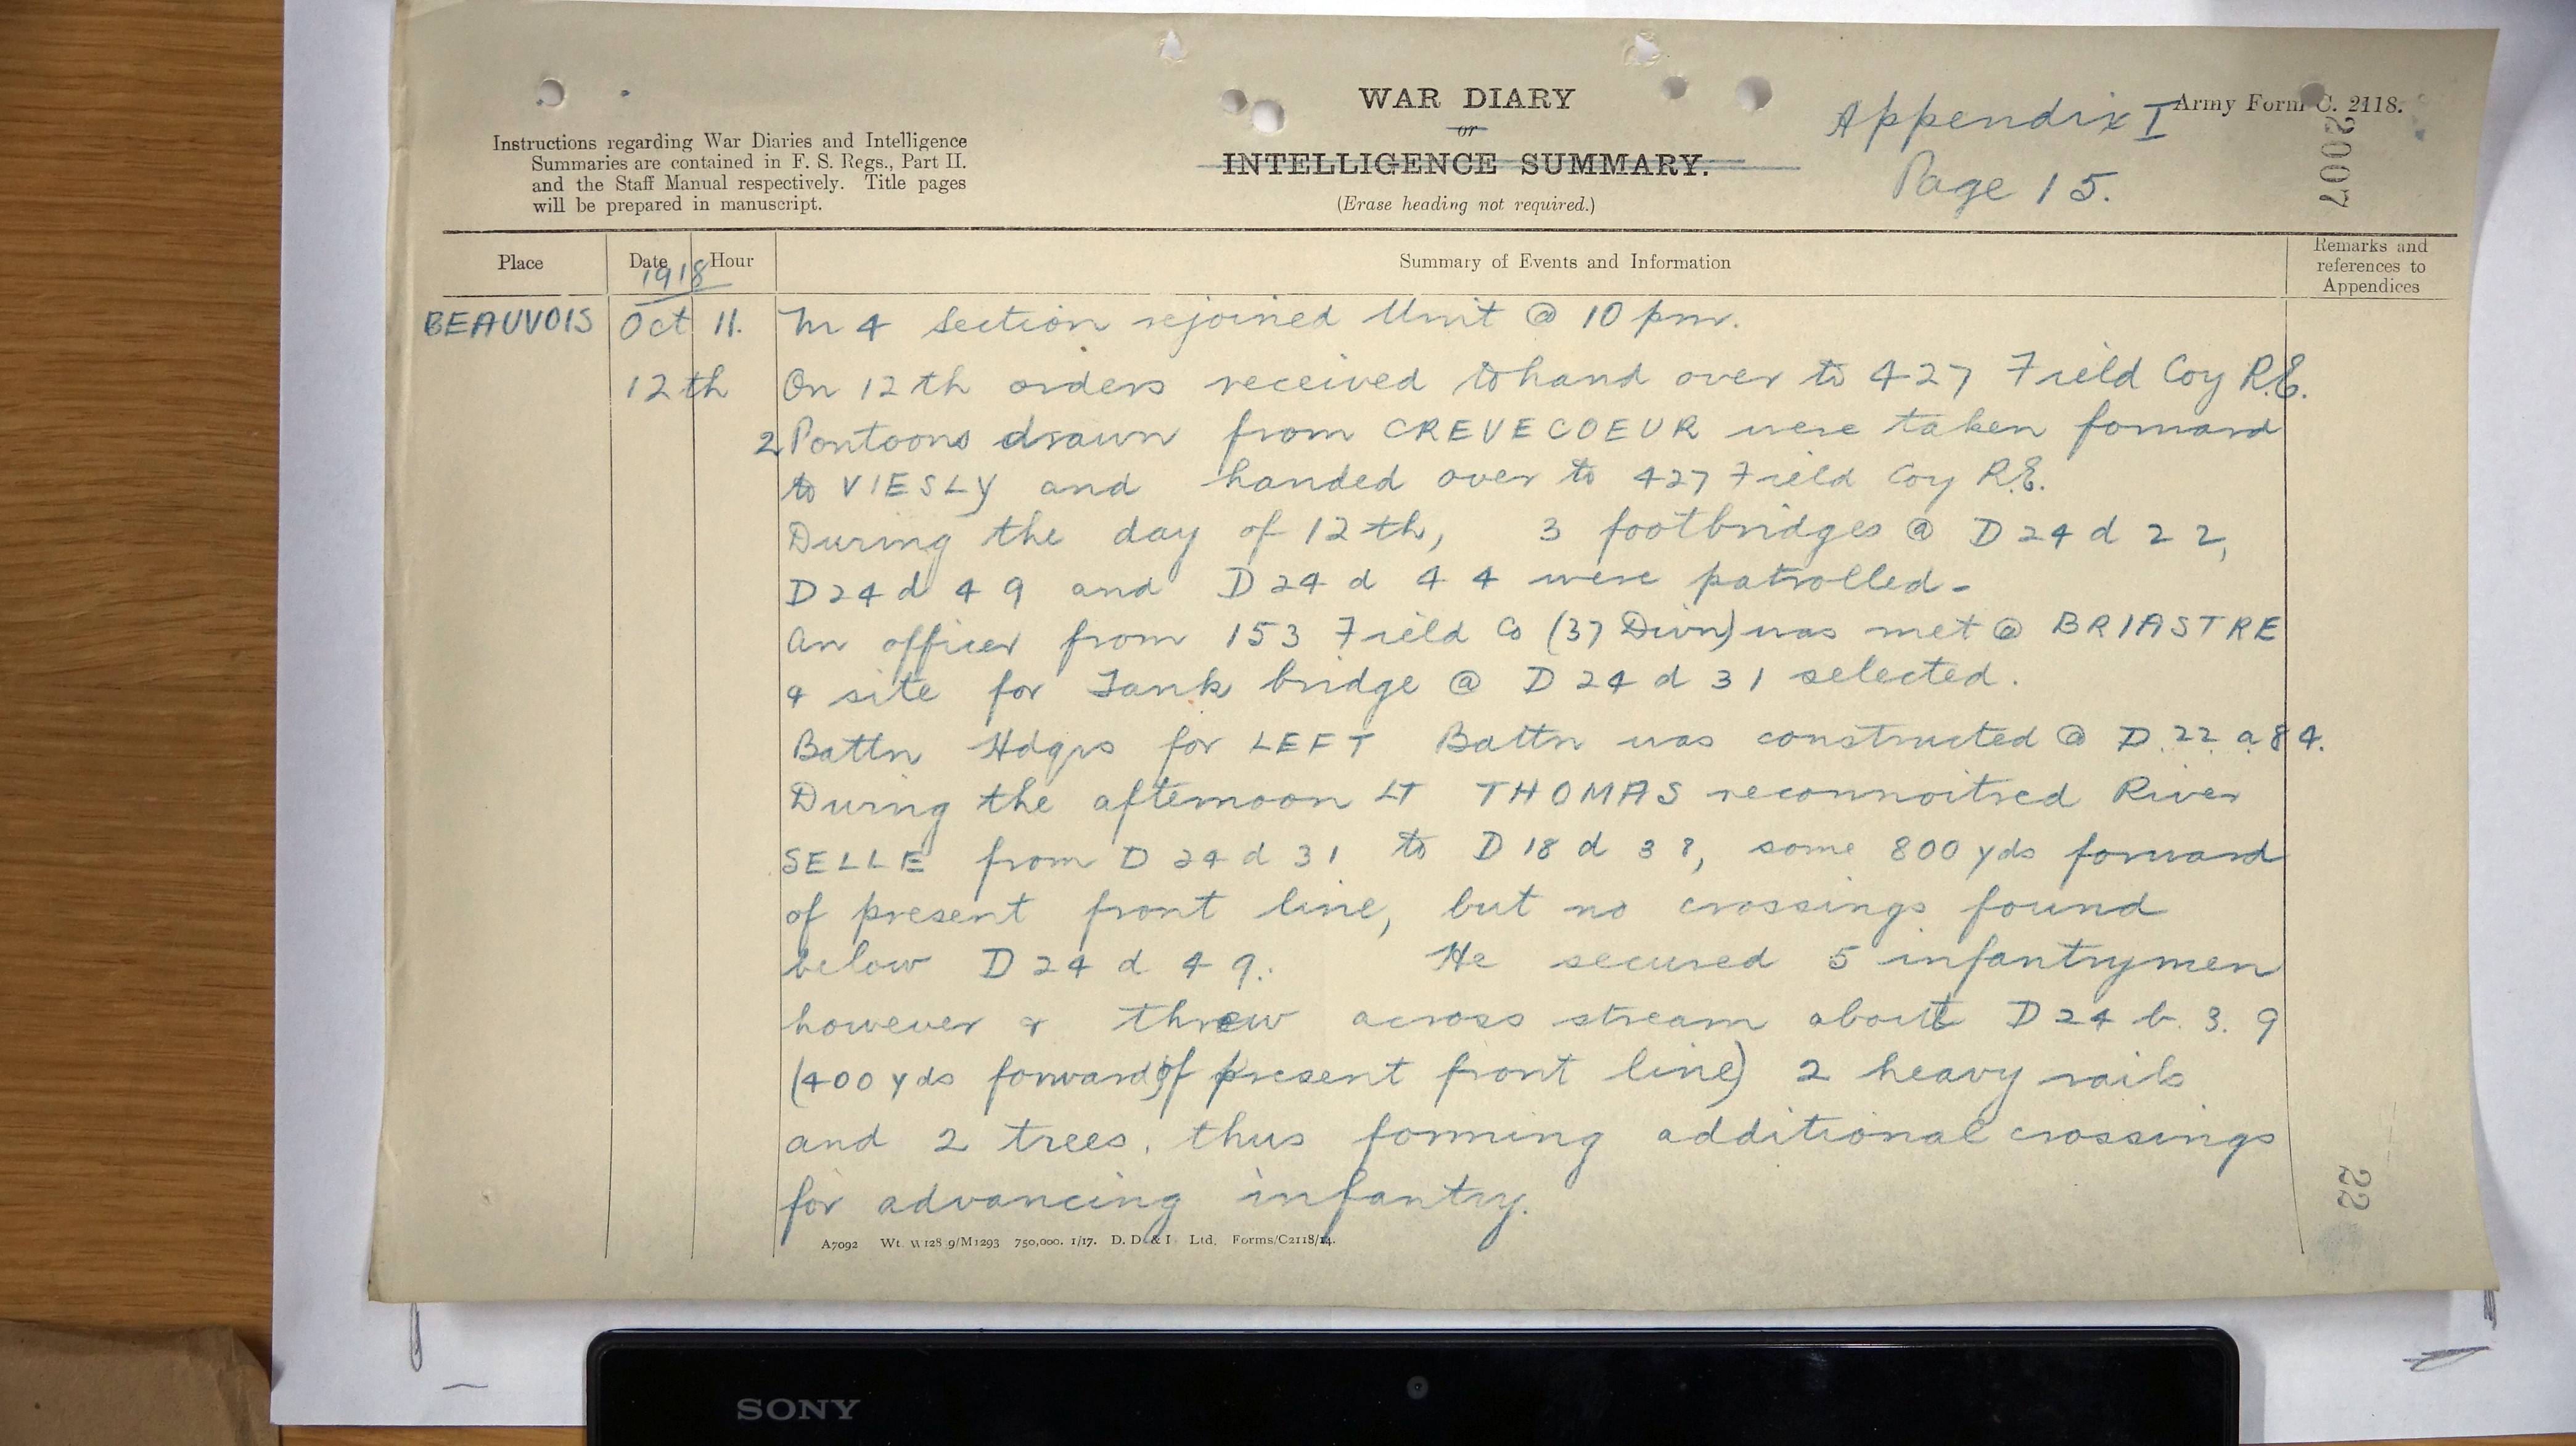 WAR DIARY
or
INTELLIGENCE SUMMARY.
(Erase heading not required.)
Instructions regarding War Diaries and Intelligence
Summaries are contained in F. S. Regs., Part II.
and the Staff Manual respectively. Title pages
will be prepared in manuscript.
Appendix I
Page 15.
Army Form C. 2118.
2007
Place
Date
Hour
1918
Summary of Events and Information
Remarks and
references to
Appendices
BEAUVOIS Oct 11. 4 Section rejoined Unit @ 10 pm.
12th On 12th orders received to hand over to 427 Field Coy R.E.
2 Pontoons drawn from CREVECOEUR were taken forward
to VIESLY and handed over to 427 Field Coy R.E.
During the day of 12th, 3 footbridges @ D 24 d 2 2,
D 24 d 4 9 and D 24 d 4 4 were patrolled -
An officer from 153 Field Co (37 Divn) was met @ BRIASTRE
& site for Tank bridge @ D 24 d 3 1 selected.
Battn Hdqrs for LEFT Battn was constructed @ D. 22. a. 8 4.
During the afternoon LT THOMAS reconnoitred River
SELLE from D 24 d 3 1 to D 18 d 3, some 800 yds forward
of present front line, but no crossings found
below D 24 d 4 9. He secured 5 infantrymen
however & threw across stream about D 24 b. 3. 9
(400 yds forward of present front line) 2 heavy rails
and 2 trees, thus forming additional crossings
for advancing infantry.
A7092 Wt. W128 9/M1293 750,000. 1/17. D. D & I Ltd. Forms/C2118/14.
22
SONY